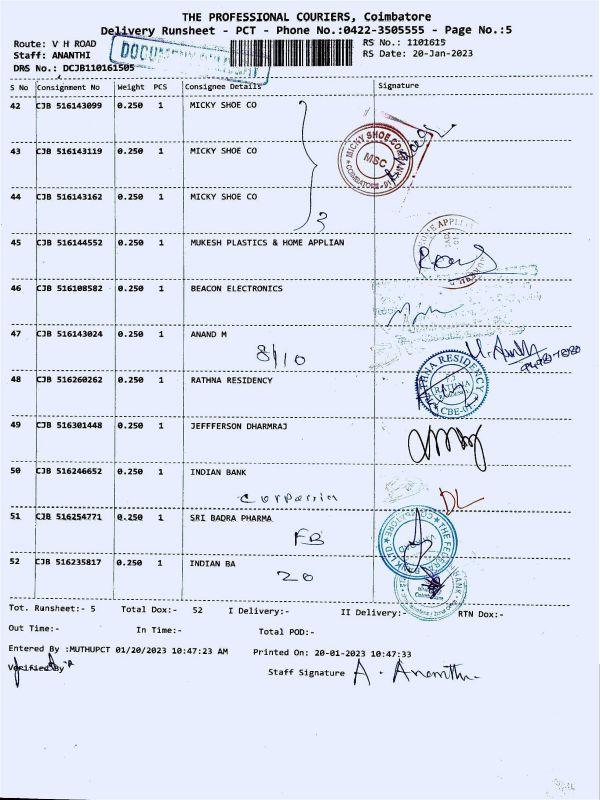 THE PROFESSIONAL COURIERS, Coimbatore
Delivery Runsheet - PCT - Phone No.:0422-3505555 - Page No.:5
Route: V H ROAD
RS No.: 1101615
Staff: ANANTHI
RS Date: 20-Jan-2023
DRS No.: DCJB110161505
S No Consignment No Weight PCS Consignee Details Signature
42 CJB 516143099 0.250 1 MICKY SHOE CO
43 CJB 516143119 0.250 1 MICKY SHOE CO
MICKY SHOE COMPANY
MSC
44 CJB 516143162 0.250 1 MICKY SHOE CO
3
45 CJB 516144552 0.250 1 MUKESH PLASTICS & HOME APPLIAN
46 CJB 516108582 0.250 1 BEACON ELECTRONICS
47 CJB 516143024 0.250 1 ANAND M
8/10
48 CJB 516260262 0.250 1 RATHNA RESIDENCY
RATHNA RESIDENCY
RATHNA
CBE-01
49 CJB 516301448 0.250 1 JEFFFERSON DHARMRAJ
50 CJB 516246652 0.250 1 INDIAN BANK
DL
51 CJB 516254771 0.250 1 SRI BADRA PHARMA
FB
52 CJB 516235817 0.250 1 INDIAN BA
20
Tot. Runsheet:- 5 Total Dox:- 52 I Delivery:- II Delivery:- RTN Dox:-
Out Time:- In Time:- Total POD:-
Entered By :MUTHUPCT 01/20/2023 10:47:23 AM Printed On: 20-01-2023 10:47:33
Verified By
Staff Signature A. Ananthi